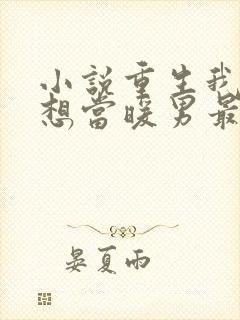 小說重生我
想當暖男最
晏夏雨